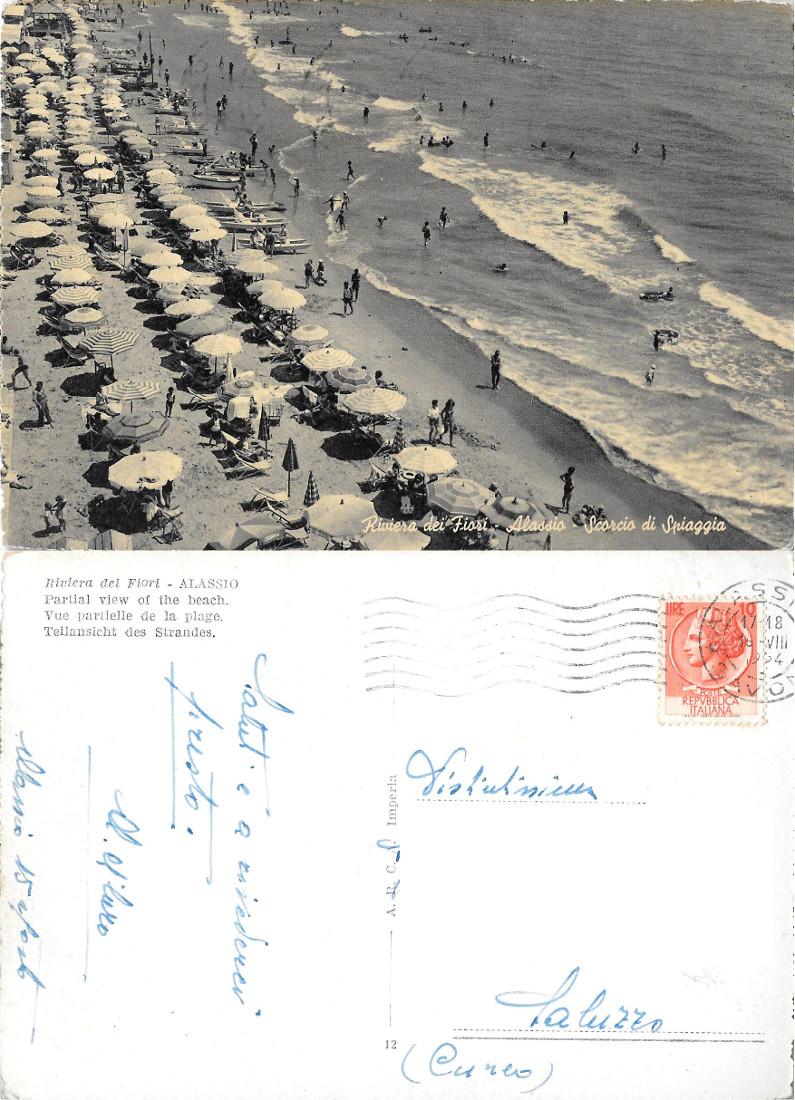 Riviera dei Fiori - Alassio Scorcio di Spiaggia
Riviera dei Fiori - ALASSIO
Partial view of the beach.
Vue partielle de la plage.
Teilansicht des Strandes.
Saluti e a rivederci
presto.
Alassio 15
A. R. C. Imperia
12
LIRE 10
REPVBBLICA
ITALIANA
17-18
VIII
Saluzzo
(Cuneo)